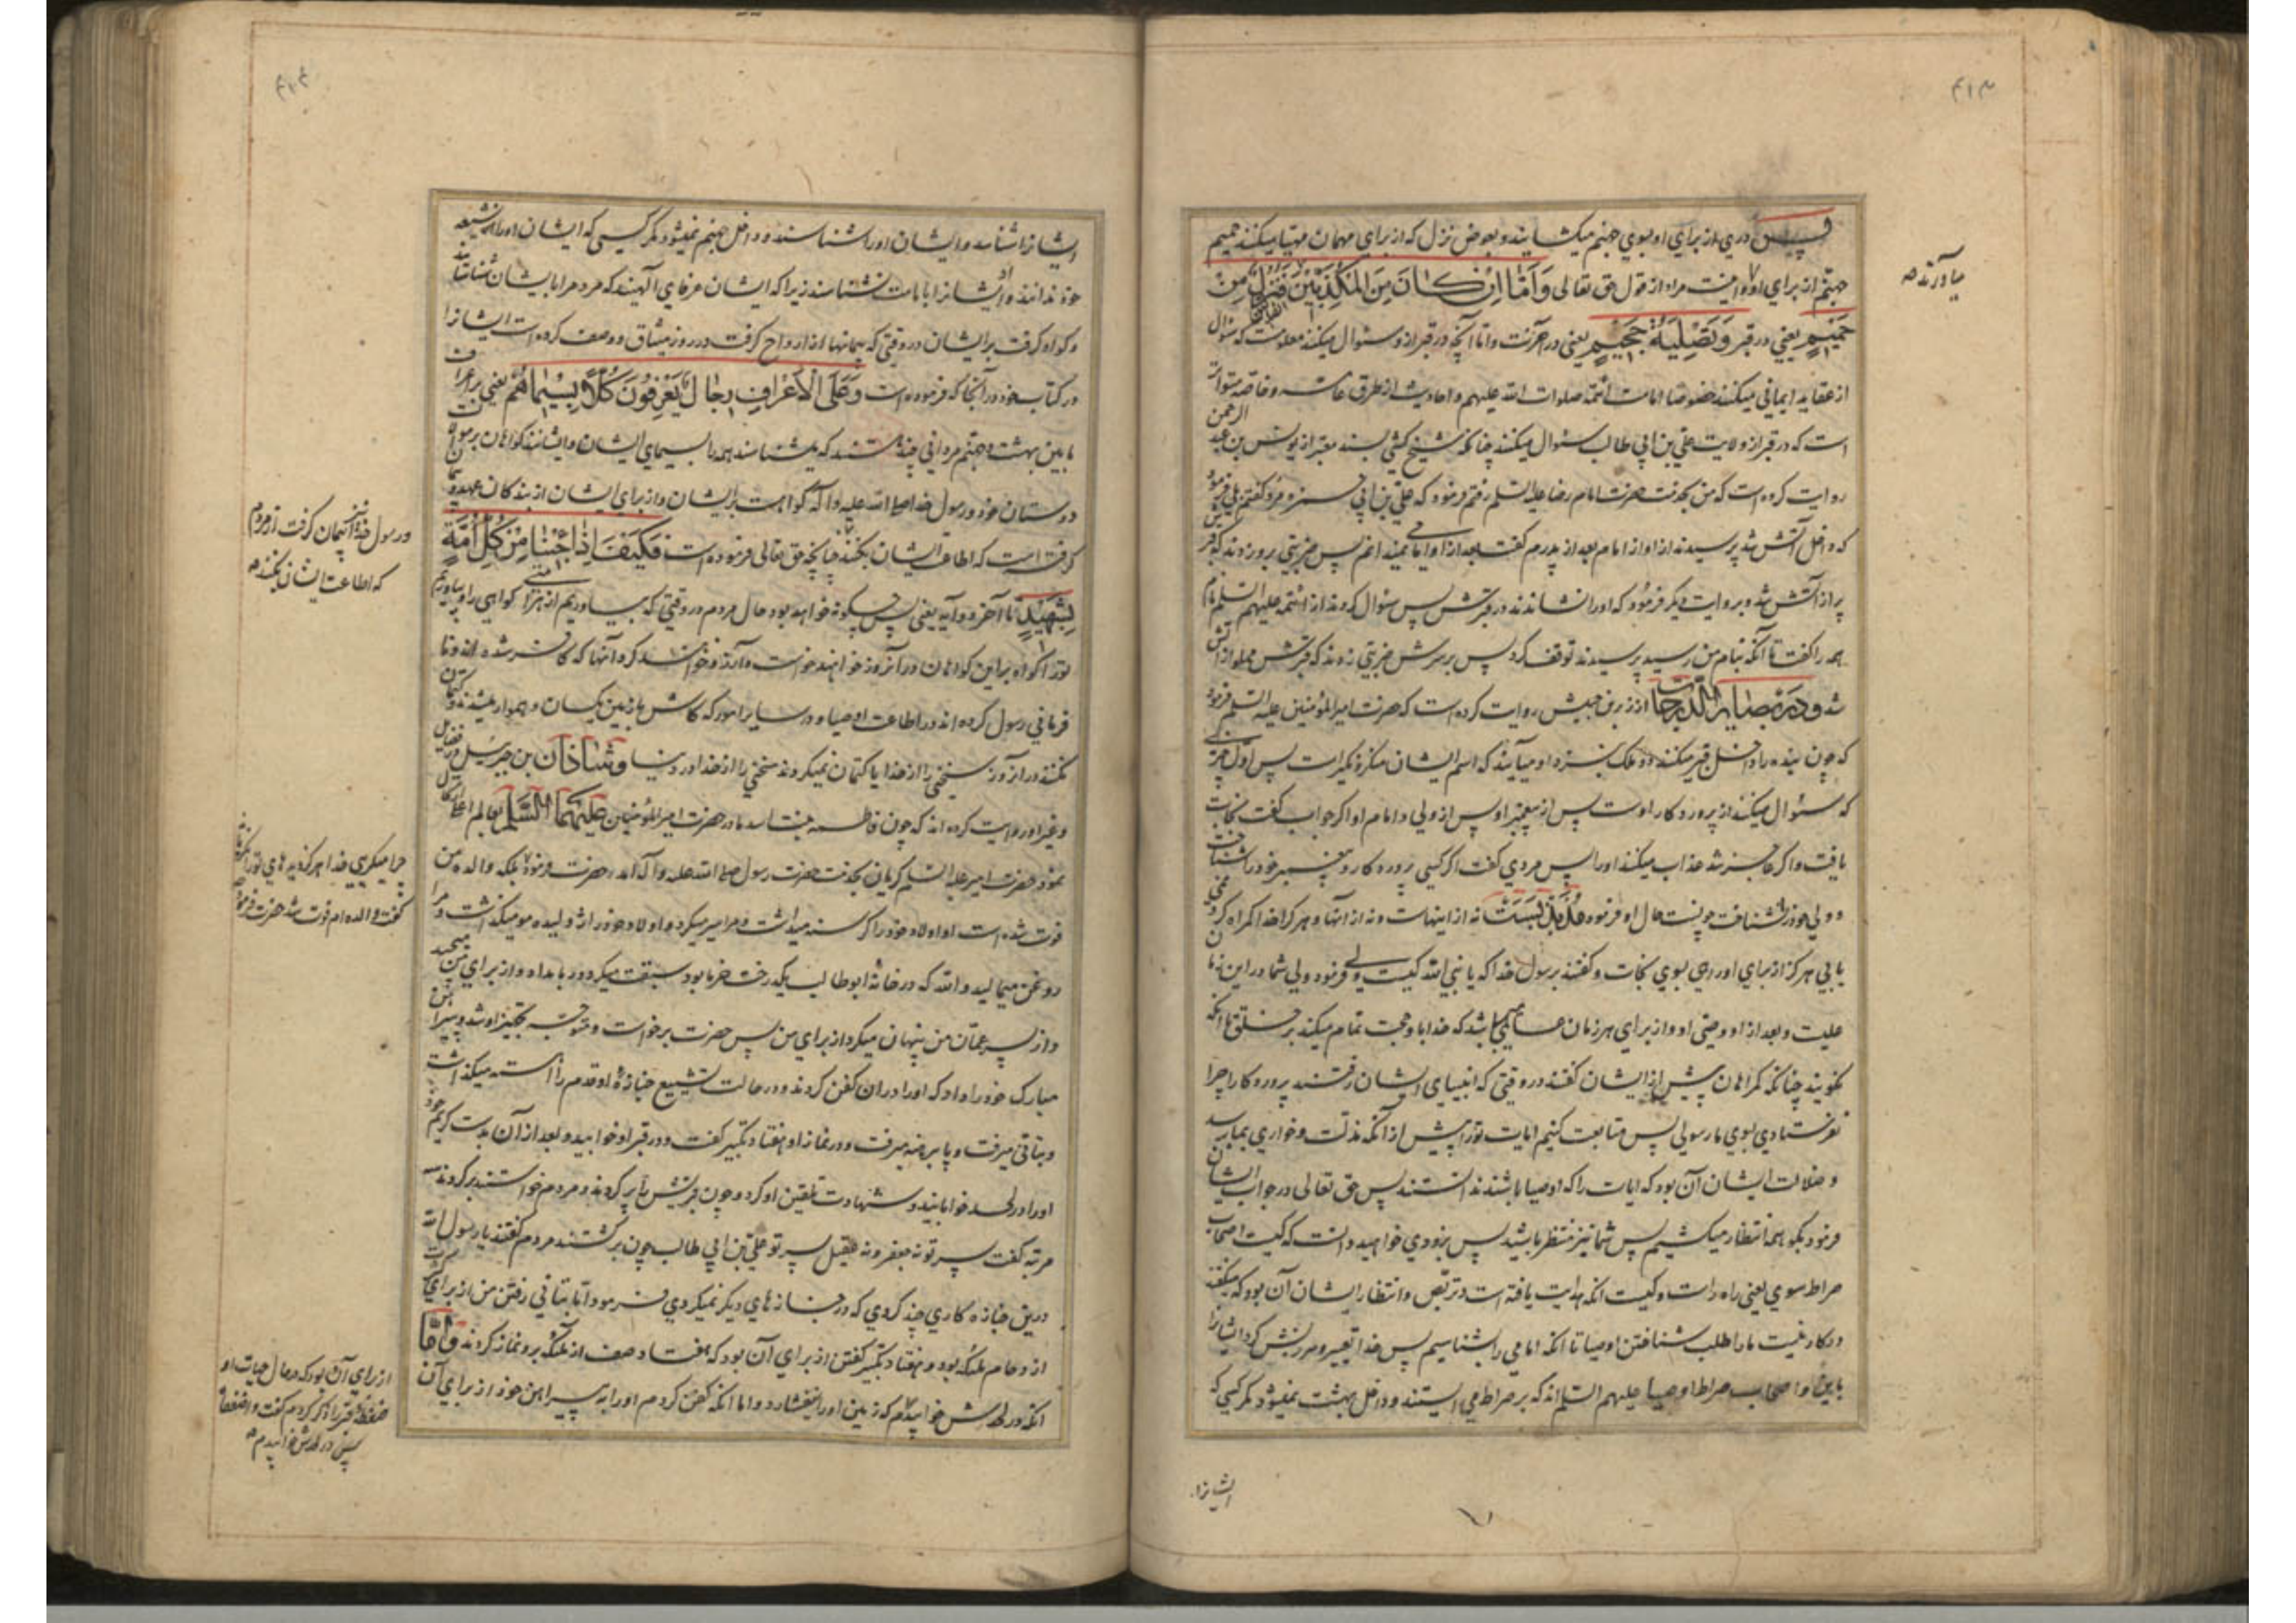 ۴۱۳
پس دری از برای او بسوی جهنم میکشایند و بعوض نزل که از برای مهمان مهیا میکنند حمیم
جهنم از برای او و اینست مراد از قول حق تعالی وَاَمّا اِنْ كانَ مِنَ المُكَذِّبينَ فَنُزُلٌ مِنْ
حَميمٍ یعنی در قبر وَتَصْلِيَةُ جَحيمٍ یعنی در آخرت و اما آنچه در قبر از او سئوال میکنند معلومست که سئوال
از عقاید ایمانی میکنند خصوصا امامت ائمه صلوات الله علیهم و احادیث از طرق عامه و خاصه متواتر
است که در قبر از ولایت علی بن ابی طالب سئوال میکنند چنانکه شیخ کشی بسند معتبر از یونس بن عبد الرحمن
روایت کرده است که من بخدمت حضرت امام رضا علیه السلم رفتم فرمود که علی بن ابی حمزه مرد گفتم بلی فرمود
که داخل آتش شد پرسیدند از او از امام بعد از پدرم گفت بعد از او امامی نمیدانم پس ضربتی برو زدند که قبرش
پر از آتش شد و بروایت دیگر فرمود که او را نشاندند در قبرش پس سئوال کردند از ائمه علیهم السلم نام
همه را گفت تا آنکه بنام من رسید پرسیدند توقف کرد پس بر سرش ضربتی زدند که قبرش مملو از آتش
شد و در بصایر الدرجات از زر بن حبیش روایت کرده است که حضرت امیر المؤمنین علیه السلم فرمود
که چون بنده را داخل قبر میکنند دو ملک بنزد او میآیند که اسم ایشان منکر و نکیر است پس اول چیزی
که سئوال میکنند از پروردکار اوست پس از پیغمبر او پس از ولی و امام او اکر جواب گفت نجات
یافت و اکر عاجز شد عذاب میکنند او را پس مردی گفت اکر کسی پروردکار و پیغمبر خود را شناخت
و ولی خود را نشناخت چونست حال او فرموده مذبذبست نه از اینهاست و نه از آنها و هر کرا خدا کمراه کرد نمی
یابی هرکز از برای او راهی بسوی نجات و گفتند برسول خدا که یا نبی الله کیست ولی فرمود ولی شما در این زمان
علیست و بعد از او وصی او و از برای هر زمان عالمی میباشد که خدا باو حجت تمام میکند بر خلق تا آنکه
نکویند چنانکه کمراهان پیش از ایشان گفتند در وقتی که انبیای ایشان رفتند پروردکارا چرا
نفرستادی بسوی ما رسولی پس متابعت کنیم ایات تو را پیش از آنکه مذلت و خواری بما رسد
و ضلالت ایشان آن بود که ایات را که اوصیا باشند ندانستند پس حق تعالی در جواب ایشان
فرمود بکو همه انتظار میکشیم پس شما نیز منتظر باشید پس بزودی خواهید دانست که کیست اصحاب
صراط سوی یعنی راه راست و کیست انکه هدایت یافته است و تربص و انتظار ایشان آن بود که میکفتند
درکار نیست ما را طلب شناختن اوصیا تا انکه امامی را بشناسیم پس خدا تعییر و سرزنش کرد ایشانرا
باین و اصحاب صراط اوصیا علیهم السلم اند که بر صراط می ایستند و داخل بهشت نمیشود مکر کسی که
ایشانرا
میآورند
۴۱۴
ایشانرا شناسد و ایشان او را شناسند و داخل جهنم نمیشود مکر کسی که ایشان او را از شیعه
خود ندانند و ایشانرا بامامت نشناسند زیرا که ایشان عرفای الهیند که مردم را بایشان شناسانید
و کواه کرفت بر ایشان در وقتی که پیمانها از ارواح کرفت در روز میثاق و وصف کرده است ایشانرا
در کتاب خود در آنجا که فرموده است وَعَلَى الْاَعْرافِ رِجالٌ يَعْرِفُونَ كُلّاً بِسيماهُمْ یعنی بر اعراف
مابین بهشت و جهنم مردانی چند هستند که میشناسند همه را بسیمای ایشان و ایشانند کواهان بر
دوستان خود و رسول خدا صلی الله علیه و آله کواهست بر ایشان و از برای ایشان از بندکان عهد و پیمان
کرفته است که اطاعت ایشان بکنند چنانچه حق تعالی فرموده است فَكَيْفَ اِذا جِئْنا مِنْ كُلِّ اُمَّةٍ
بِشَهيدٍ تا آخر دو آیه یعنی پس چکونه خواهد بود حال مردم در وقتی که بیاوریم از هر امتی کواهی را و بیاوریم
تو را کواه بر این کواهان در آنروز خواهند خواست و آرزو خواهند کرد آنها که کافر شده اند و نا
فرمانی رسول کرده اند در اطاعت اوصیا و در سایر امور که کاش با زمین یکسان و هموار میشدند و کتمان
نکنند در آنروز سخنی را از خدا یا کتمان نمیکردند سخنی را از خدا در دنیا و شاذان بن جبرئیل در فضایل
و غیر او روایت کرده اند که چون فاطمه بنت اسد مادر حضرت امیر المؤمنین علیهما السلم بعالم اعلا ارتحال
نمود حضرت امیر علیه السلم کریان بخدمت حضرت رسول صلی الله علیه و آله آمد حضرت فرمود بلکه والده من
فوت شده است او اولاد خود را کرسنه میداشت و مرا سیر میکرد و اولاد خود را ژولیده مو میکذاشت و مرا
روغن میمالید والله که در خانه ابوطالب یکدرخت خرما بود سبقت میکرد در بامداد و از برای من میچید
و از پسر عمان من پنهان میکرد از برای من پس حضرت برخواست و متوجه تجهیز او شد و پیراهن
مبارک خود را داد که او را در آن کفن کردند و در حالت تشییع جنازه او قدم را آهسته میکذاشت
و بتانی میرفت و پا برهنه میرفت و در نماز او هفتاد تکبیر گفت و در قبر او خوابید و بعد از آن بدست کریم خود
او را در لحد خوابانید و شهادت تلقین او کرد و چون قبرش را پر کردند و مردم خواستند برکردند سه
مرتبه گفت پسر تو نه جعفر و نه عقیل پسر تو علی بن ابی طالب چون برکشتند مردم گفتند یا رسول الله
در این جنازه کاری چند کردی که در جنازهای دیکر نمیکردی فرمود اما بتانی رفتن من از برای کثرت
ازدحام ملئکه بود و هفتاد تکبیر گفتن از برای آن بود که هفتاد صف از ملئکه برو نماز کردند و اما
انکه در لحدش خوابیدم که زمین او را نیفشارد و اما انکه کفن کردم او را به پیراهن خود از برای آن
و رسول خدا نیز پیمان کرفت از مردم
که اطاعت ایشان بکنند
چرا میکریی خدا هرکز دیدهای تو را نکریاند
گفت والده ام فوت شد حضرت فرمود
از برای آن بود که در حال حیات او
ضغطه قبر را ذکر کردم گفت واضغطاه
پس در لحدش خوابیدم